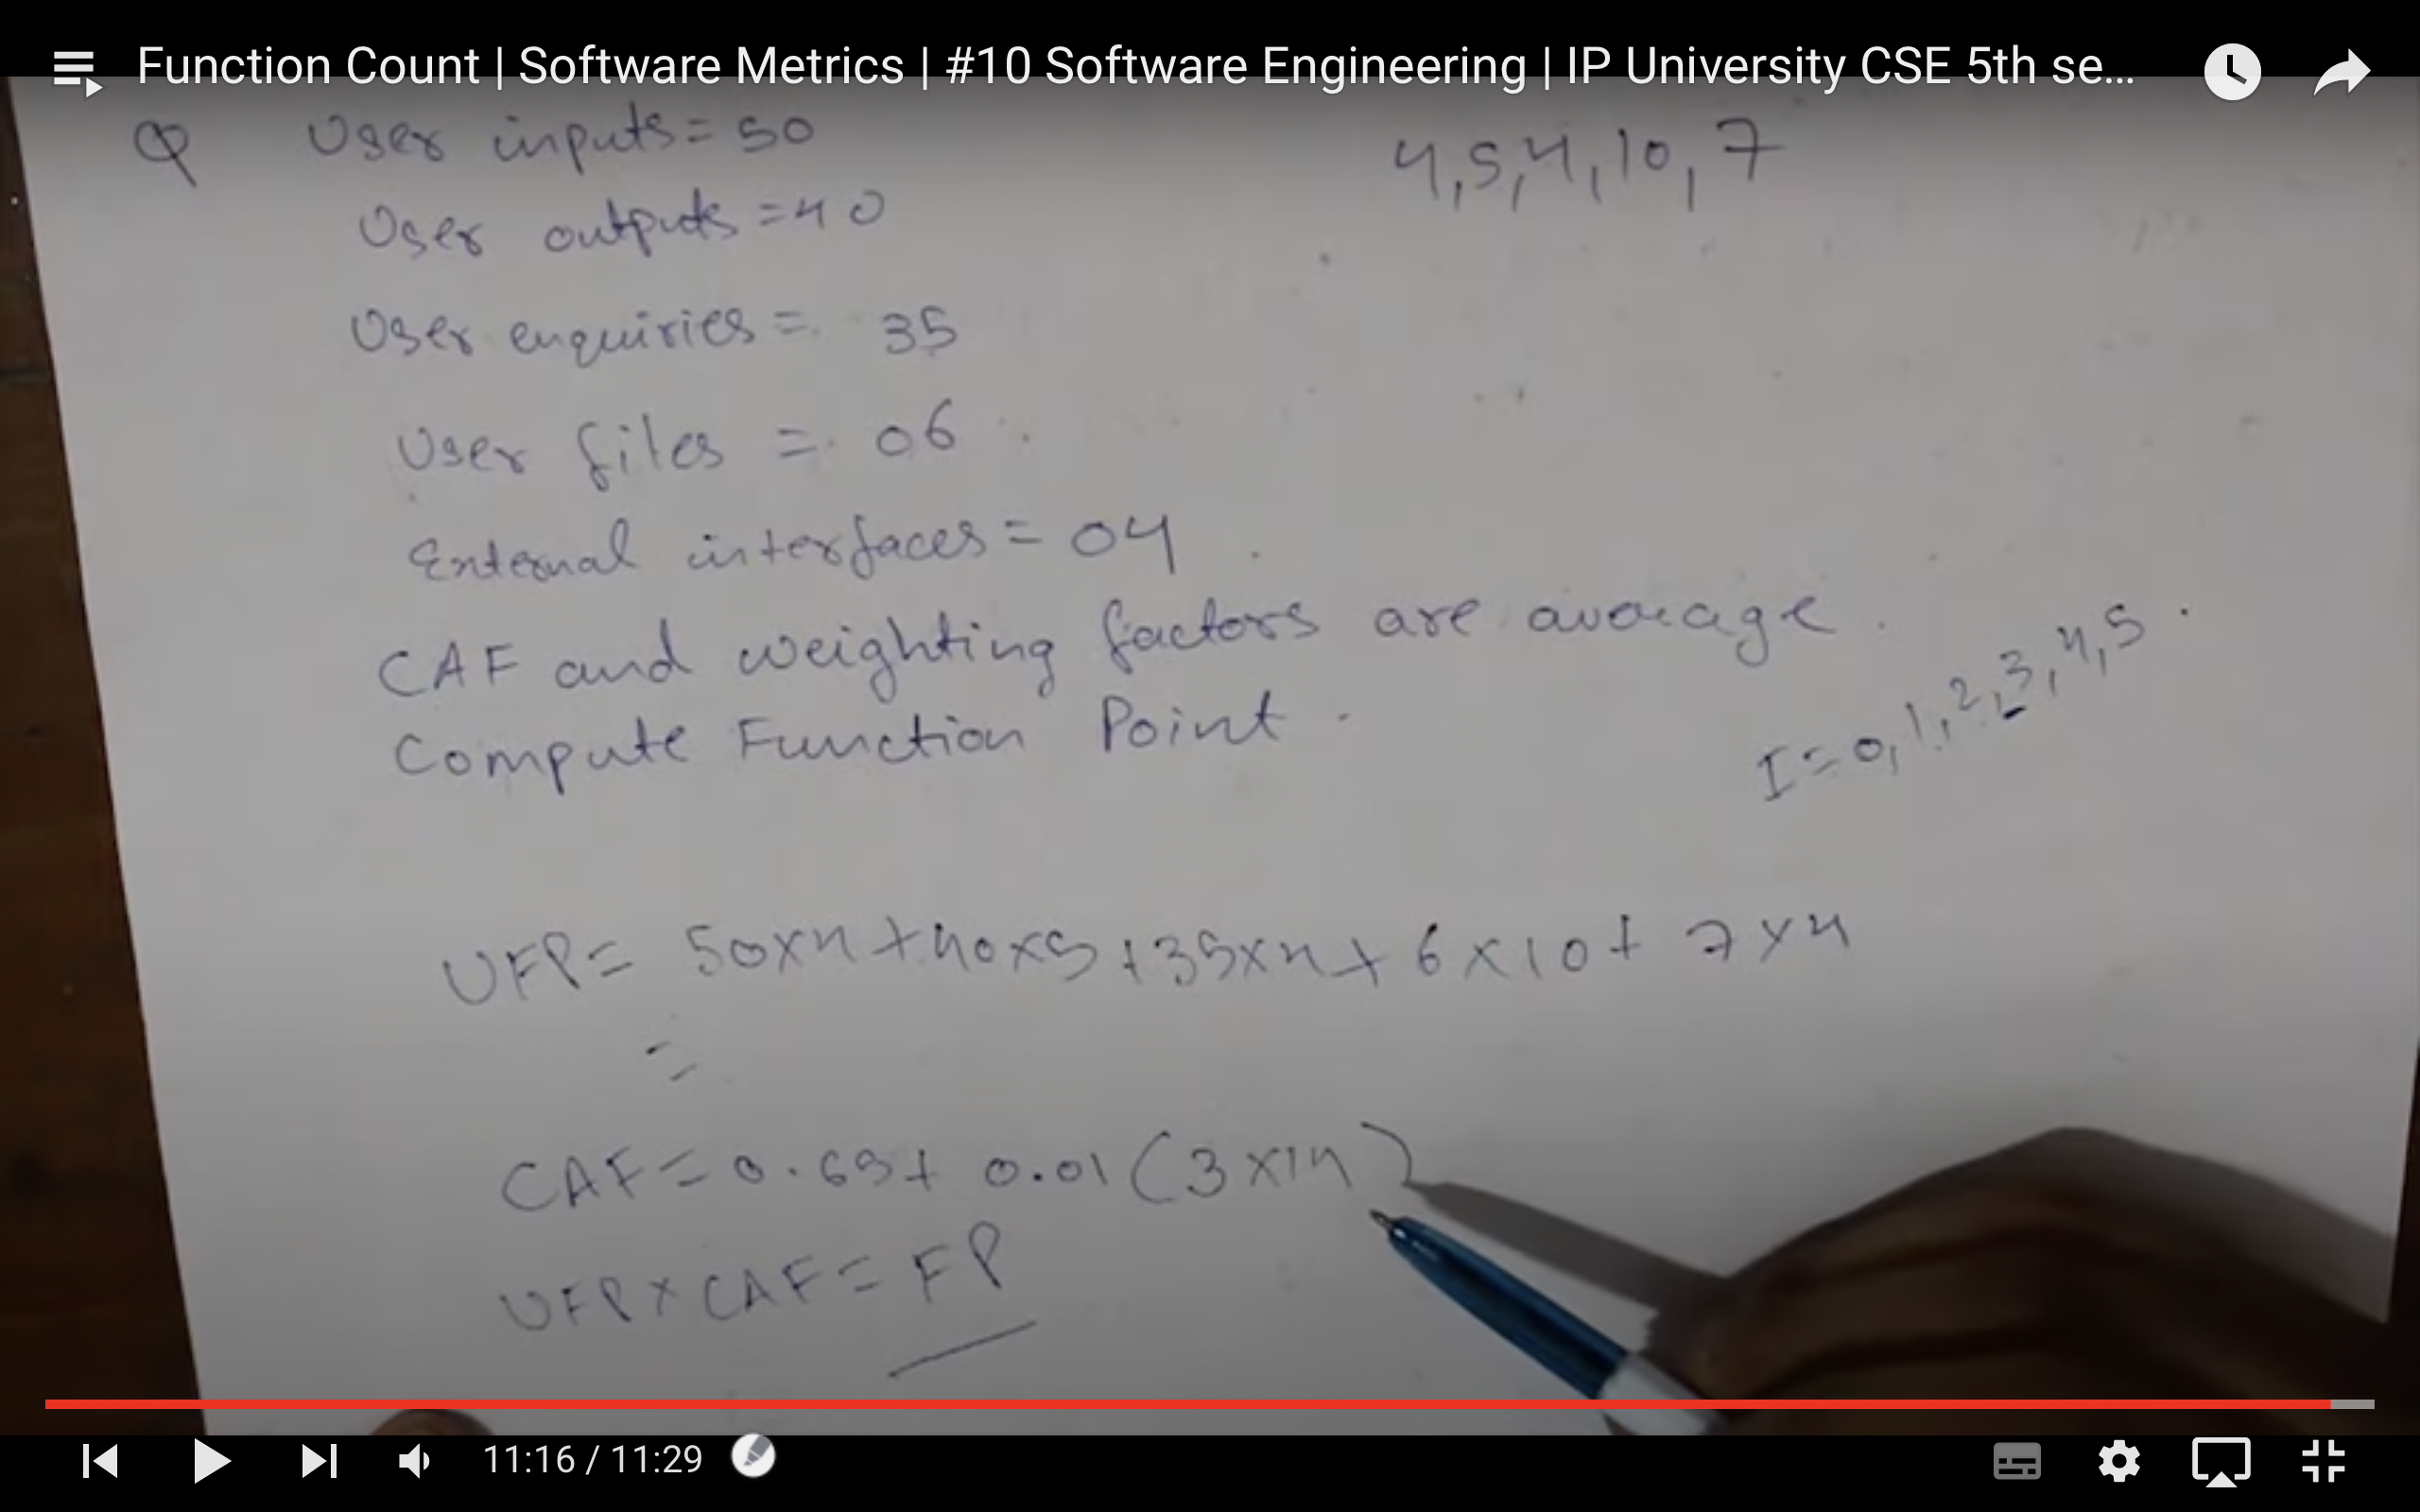 Function Count | Software Metrics | #10 Software Engineering | IP University CSE 5th se...
Q User inputs = 50
4, 5, 4, 10, 7
User outputs = 40
User enquiries = 35
User files = 06
External interfaces = 04
CAF and weighting factors are average.
Compute Function Point.
I = 0, 1, 2, 3, 4, 5.
UFP = 50x4 + 40x5 + 35x4 + 6x10 + 7x4
=
CAF = 0.65 + 0.01 (3x14)
UFP x CAF = FP
11:16 / 11:29